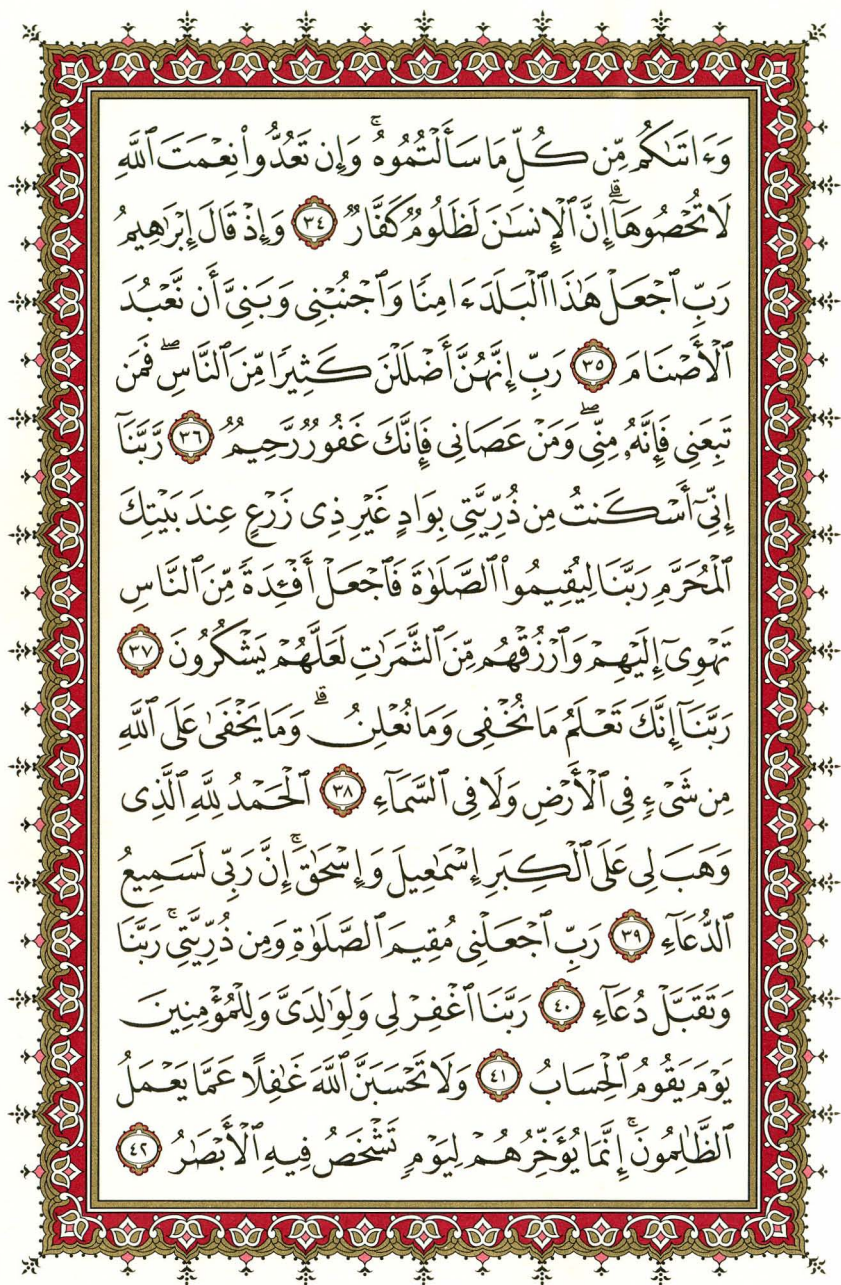 وَءَاتَىٰكُم مِّن كُلِّ مَا سَأَلْتُمُوهُ ۚ وَإِن تَعُدُّوا۟ نِعْمَتَ ٱللَّهِ
لَا تُحْصُوهَآ ۗ إِنَّ ٱلْإِنسَـٰنَ لَظَلُومٌ كَفَّارٌ ٣٤ وَإِذْ قَالَ إِبْرَٰهِيمُ
رَبِّ ٱجْعَلْ هَـٰذَا ٱلْبَلَدَ ءَامِنًا وَٱجْنُبْنِى وَبَنِىَّ أَن نَّعْبُدَ
ٱلْأَصْنَامَ ٣٥ رَبِّ إِنَّهُنَّ أَضْلَلْنَ كَثِيرًا مِّنَ ٱلنَّاسِ ۖ فَمَن
تَبِعَنِى فَإِنَّهُۥ مِنِّى ۖ وَمَنْ عَصَانِى فَإِنَّكَ غَفُورٌ رَّحِيمٌ ٣٦ رَّبَّنَآ
إِنِّىٓ أَسْكَنتُ مِن ذُرِّيَّتِى بِوَادٍ غَيْرِ ذِى زَرْعٍ عِندَ بَيْتِكَ
ٱلْمُحَرَّمِ رَبَّنَا لِيُقِيمُوا۟ ٱلصَّلَوٰةَ فَٱجْعَلْ أَفْـِٔدَةً مِّنَ ٱلنَّاسِ
تَهْوِىٓ إِلَيْهِمْ وَٱرْزُقْهُم مِّنَ ٱلثَّمَرَٰتِ لَعَلَّهُمْ يَشْكُرُونَ ٣٧
رَبَّنَآ إِنَّكَ تَعْلَمُ مَا نُخْفِى وَمَا نُعْلِنُ ۗ وَمَا يَخْفَىٰ عَلَى ٱللَّهِ
مِن شَىْءٍ فِى ٱلْأَرْضِ وَلَا فِى ٱلسَّمَآءِ ٣٨ ٱلْحَمْدُ لِلَّهِ ٱلَّذِى
وَهَبَ لِى عَلَى ٱلْكِبَرِ إِسْمَـٰعِيلَ وَإِسْحَـٰقَ ۚ إِنَّ رَبِّى لَسَمِيعُ
ٱلدُّعَآءِ ٣٩ رَبِّ ٱجْعَلْنِى مُقِيمَ ٱلصَّلَوٰةِ وَمِن ذُرِّيَّتِى ۚ رَبَّنَا
وَتَقَبَّلْ دُعَآءِ ٤٠ رَبَّنَا ٱغْفِرْ لِى وَلِوَٰلِدَىَّ وَلِلْمُؤْمِنِينَ
يَوْمَ يَقُومُ ٱلْحِسَابُ ٤١ وَلَا تَحْسَبَنَّ ٱللَّهَ غَـٰفِلًا عَمَّا يَعْمَلُ
ٱلظَّـٰلِمُونَ ۚ إِنَّمَا يُؤَخِّرُهُمْ لِيَوْمٍ تَشْخَصُ فِيهِ ٱلْأَبْصَـٰرُ ٤٢